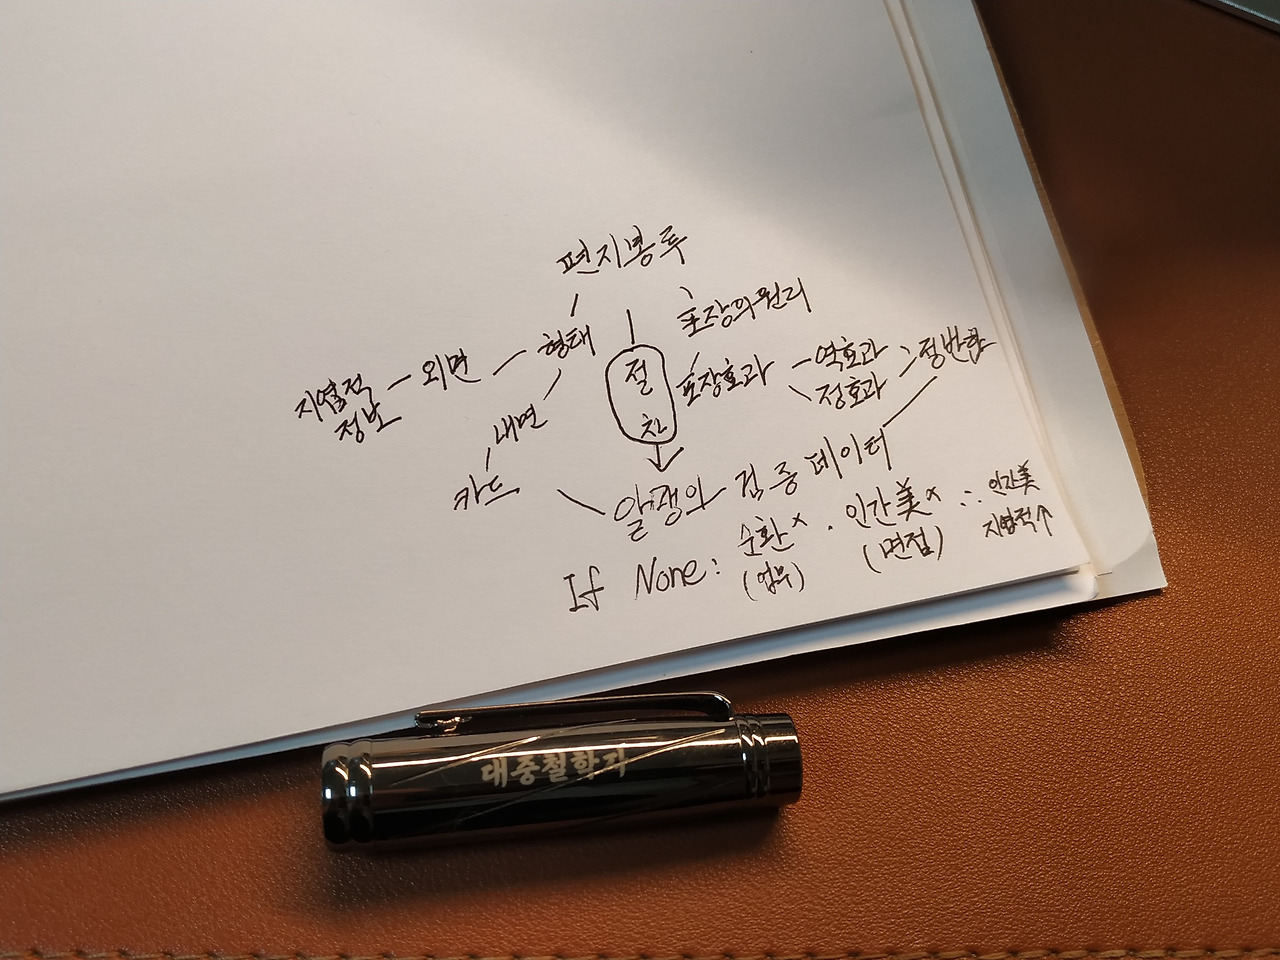 편지봉투
포장의 원리
형태
절차
포장효과 - 역효과 > 정반합
정효과
지엽적 정보 - 외면
내면
카드
알갱의 검증 데이터
If None: 순환× · 인간美× ∴ 인간美
(업무) (면접) 지엽적↑
대중철학자